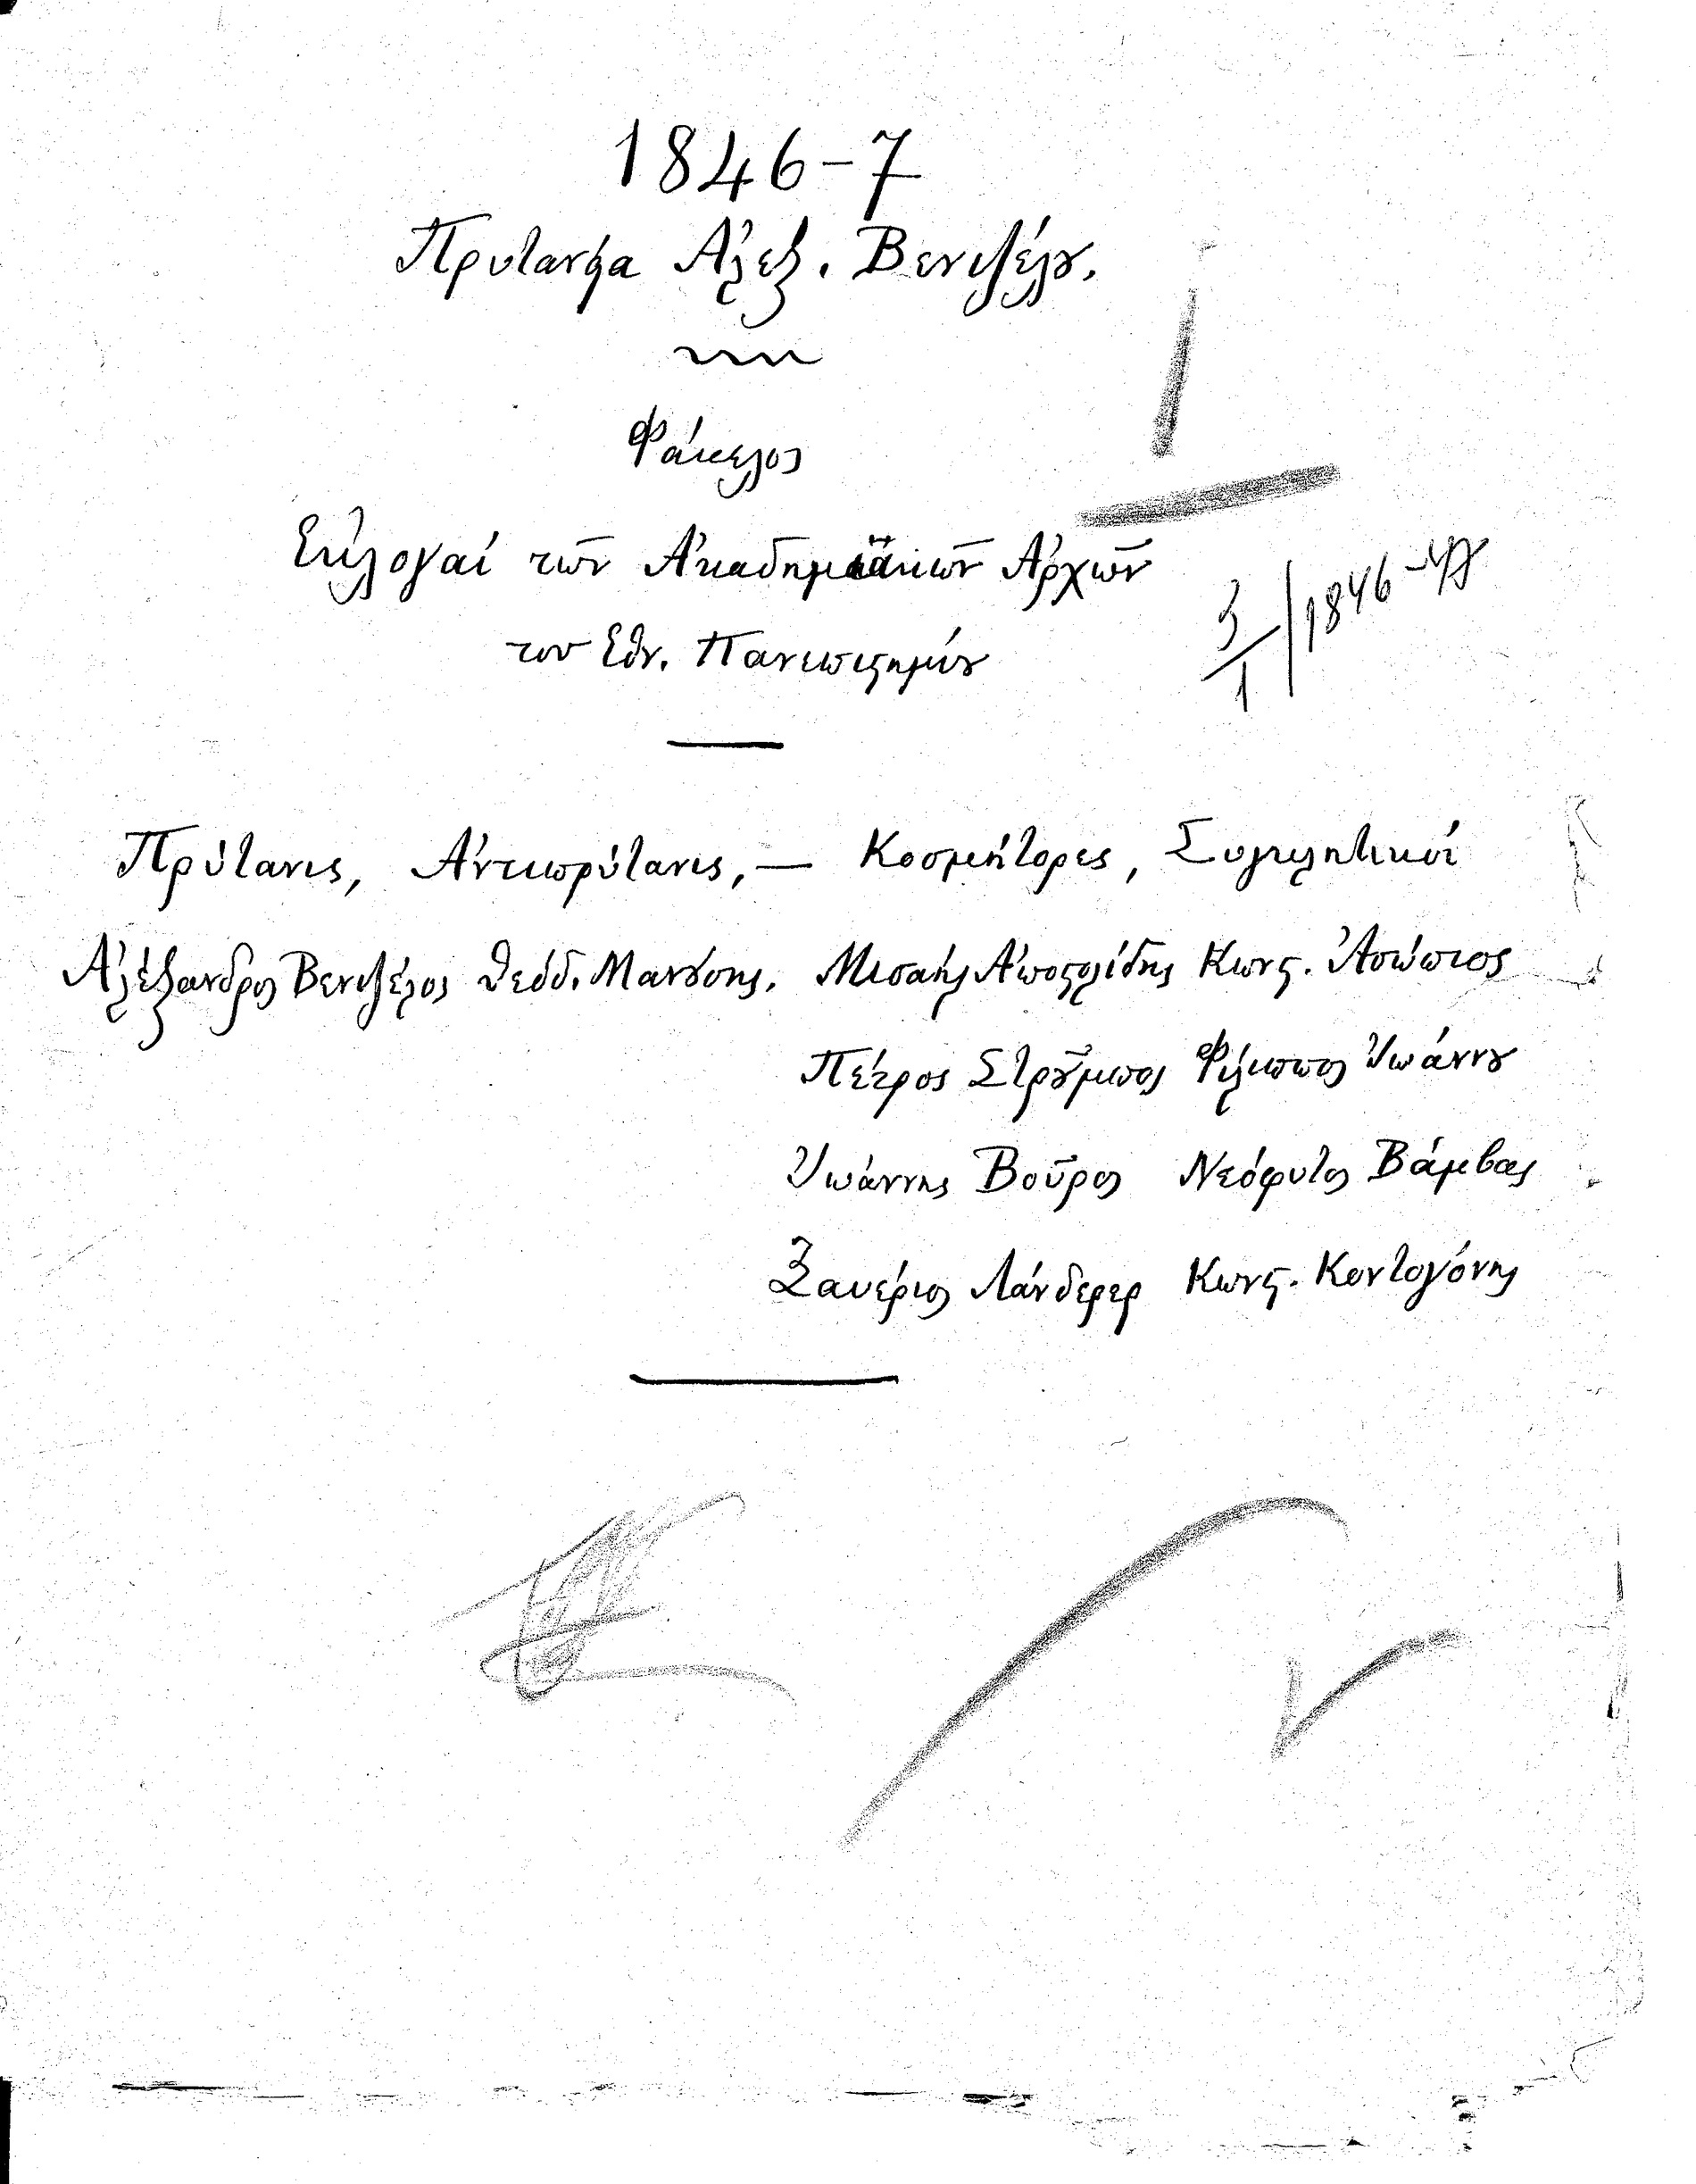 1846-7
Πρυτανεία Ἀλεξ. Βενιζέλου.
Φάκελος
Ἐκλογαί τῶν Ἀκαδημαϊκῶν Ἀρχῶν
του Ἐθν. Πανεπιστημίου
3/1 | 1846-47
Πρύτανις, Ἀντιπρύτανις, — Κοσμήτορες, Συγκλητικοί
Ἀλέξανδρος Βενιζέλος Θεόδ. Μανούσης. Μισαήλ Ἀποστολίδης Κωνστ. Ἀσώπιος
Πέτρος Στροῦμπος Φίλιππος Ἰωάννου
Ἰωάννης Βοῦρος Νεόφυτος Βάμβας
Ξαυέριος Λάνδερερ Κωνστ. Κοντογόνης